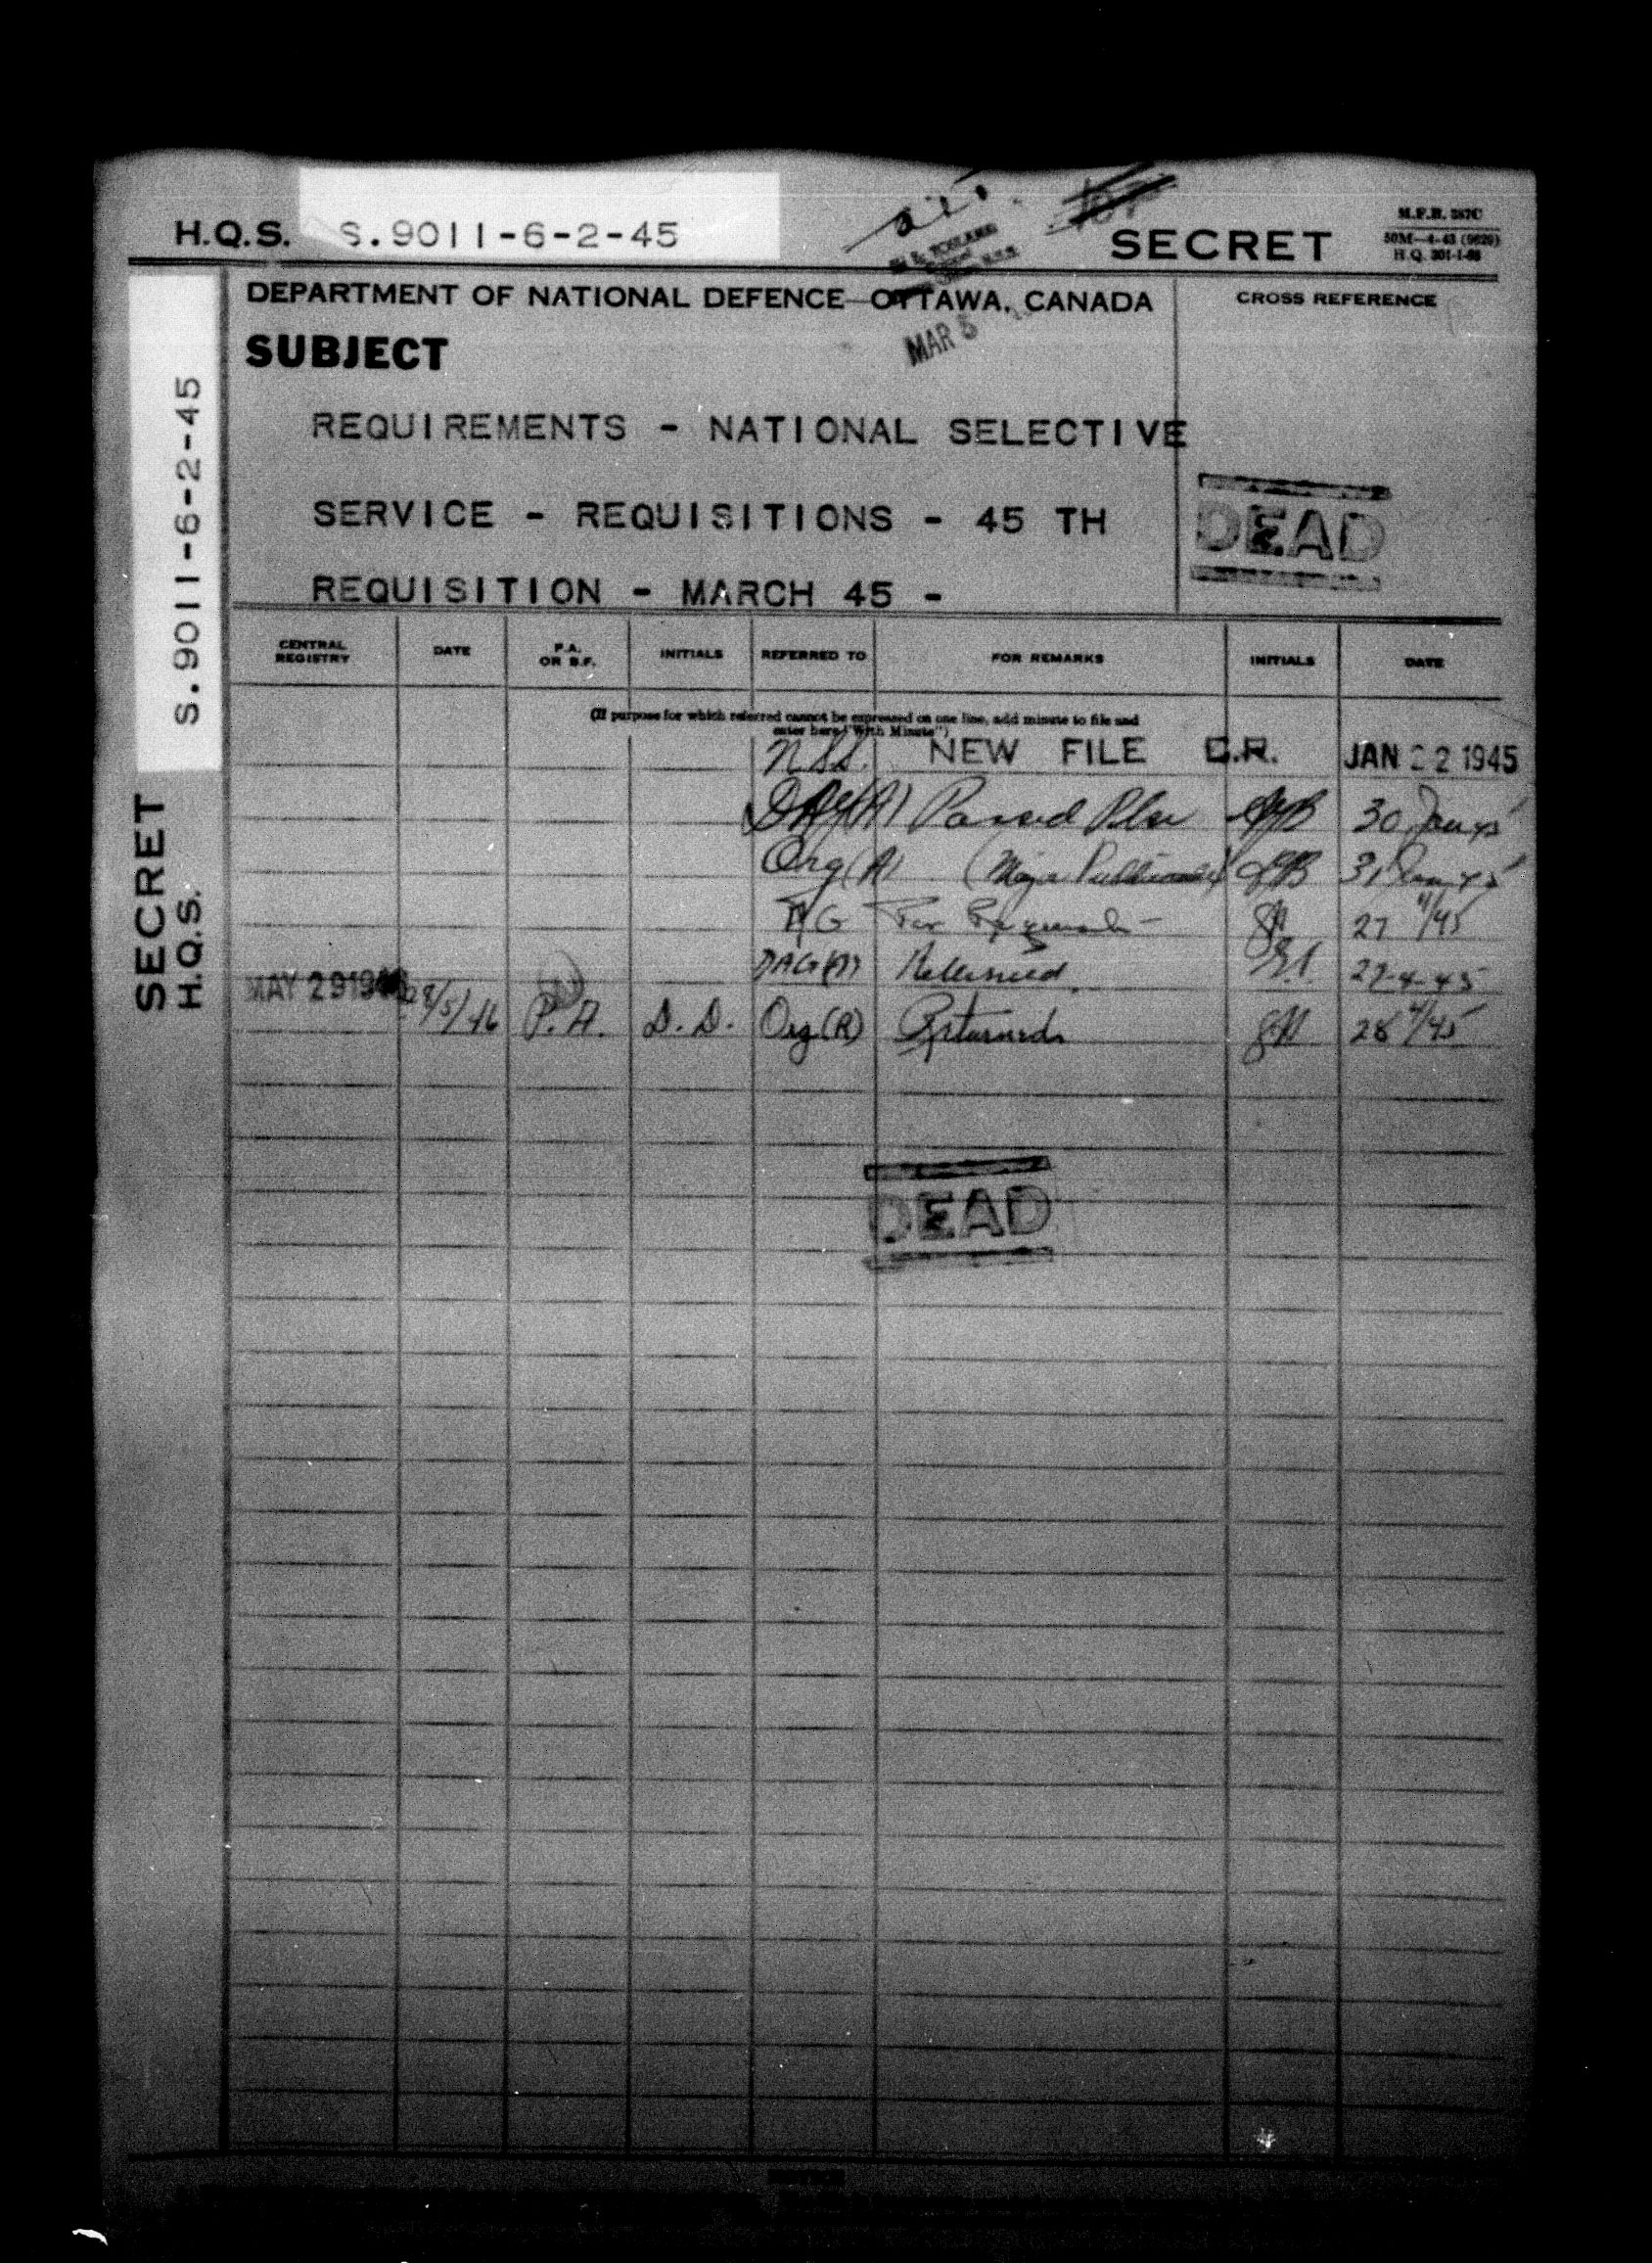 H.Q.S. S.9011-6-2-45
SECRET
M.F.B. 387C
50M—4-43 (9629)
H.Q. 301-1-66
DEPARTMENT OF NATIONAL DEFENCE—OTTAWA, CANADA
CROSS REFERENCE
MAR 5
SUBJECT
REQUIREMENTS - NATIONAL SELECTIVE
SERVICE - REQUISITIONS - 45 TH
REQUISITION - MARCH 45 -
DEAD
S.9011-6-2-45
SECRET
H.Q.S.
CENTRAL REGISTRY DATE P.A. OR B.F. INITIALS REFERRED TO FOR REMARKS INITIALS DATE
(If purpose for which referred cannot be expressed on one line, add minute to file and
enter here "With Minute")
NSS. NEW FILE C.R. JAN 22 1945
DAG(A) Passed Plse 30 Jan 45
Org(A) (Major 31 Jan 45
AG For 27 4/45
DAG(A) Returned. 27-4-45
MAY 29 1946 28/5/46 P.A. D.D. Org(R) Returned 28 4/45
DEAD